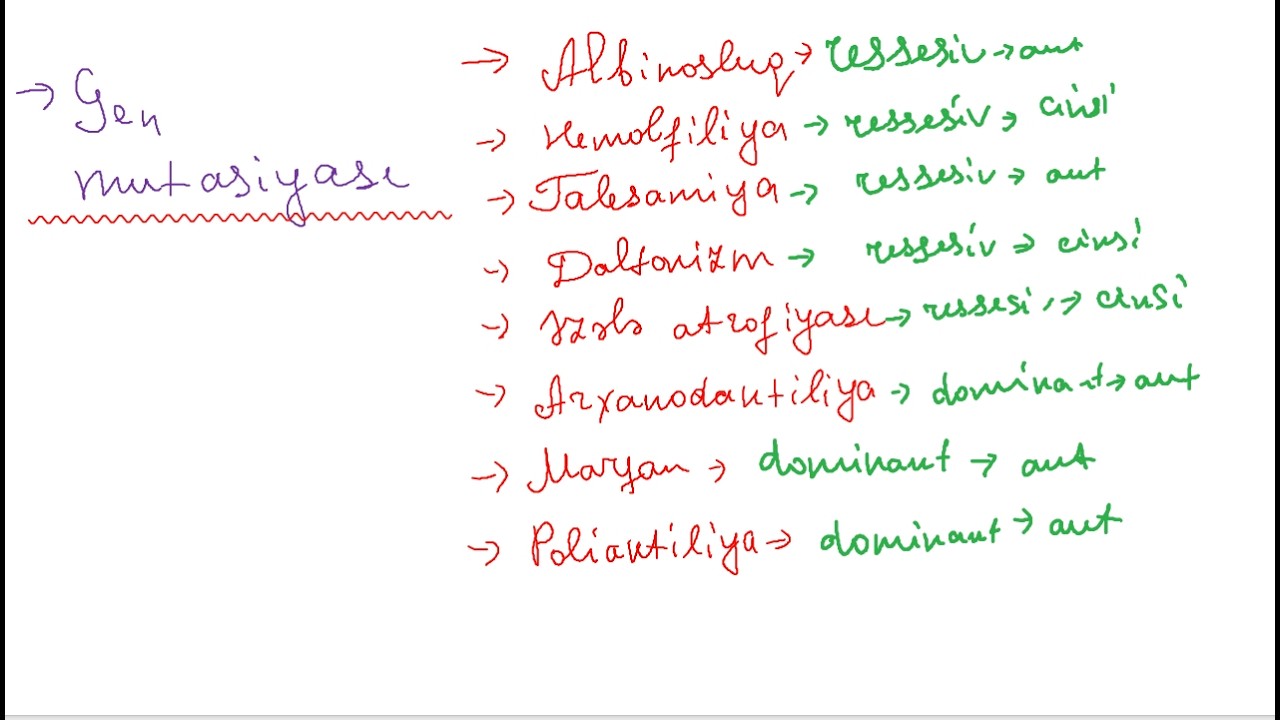 → Gen
mutasiyası
→ Albinosluq → ressesiv → aut
→ Hemolfiliya → ressesiv → cinsi
→ Talesamiya → ressesiv → aut
→ Daltonizm → ressesiv → cinsi
→ Əzələ atrofiyası → ressesi → cinsi
→ Arxanodaktiliya → dominant → aut
→ Marfan → dominant → aut
→ Poliaktiliya → dominant → aut